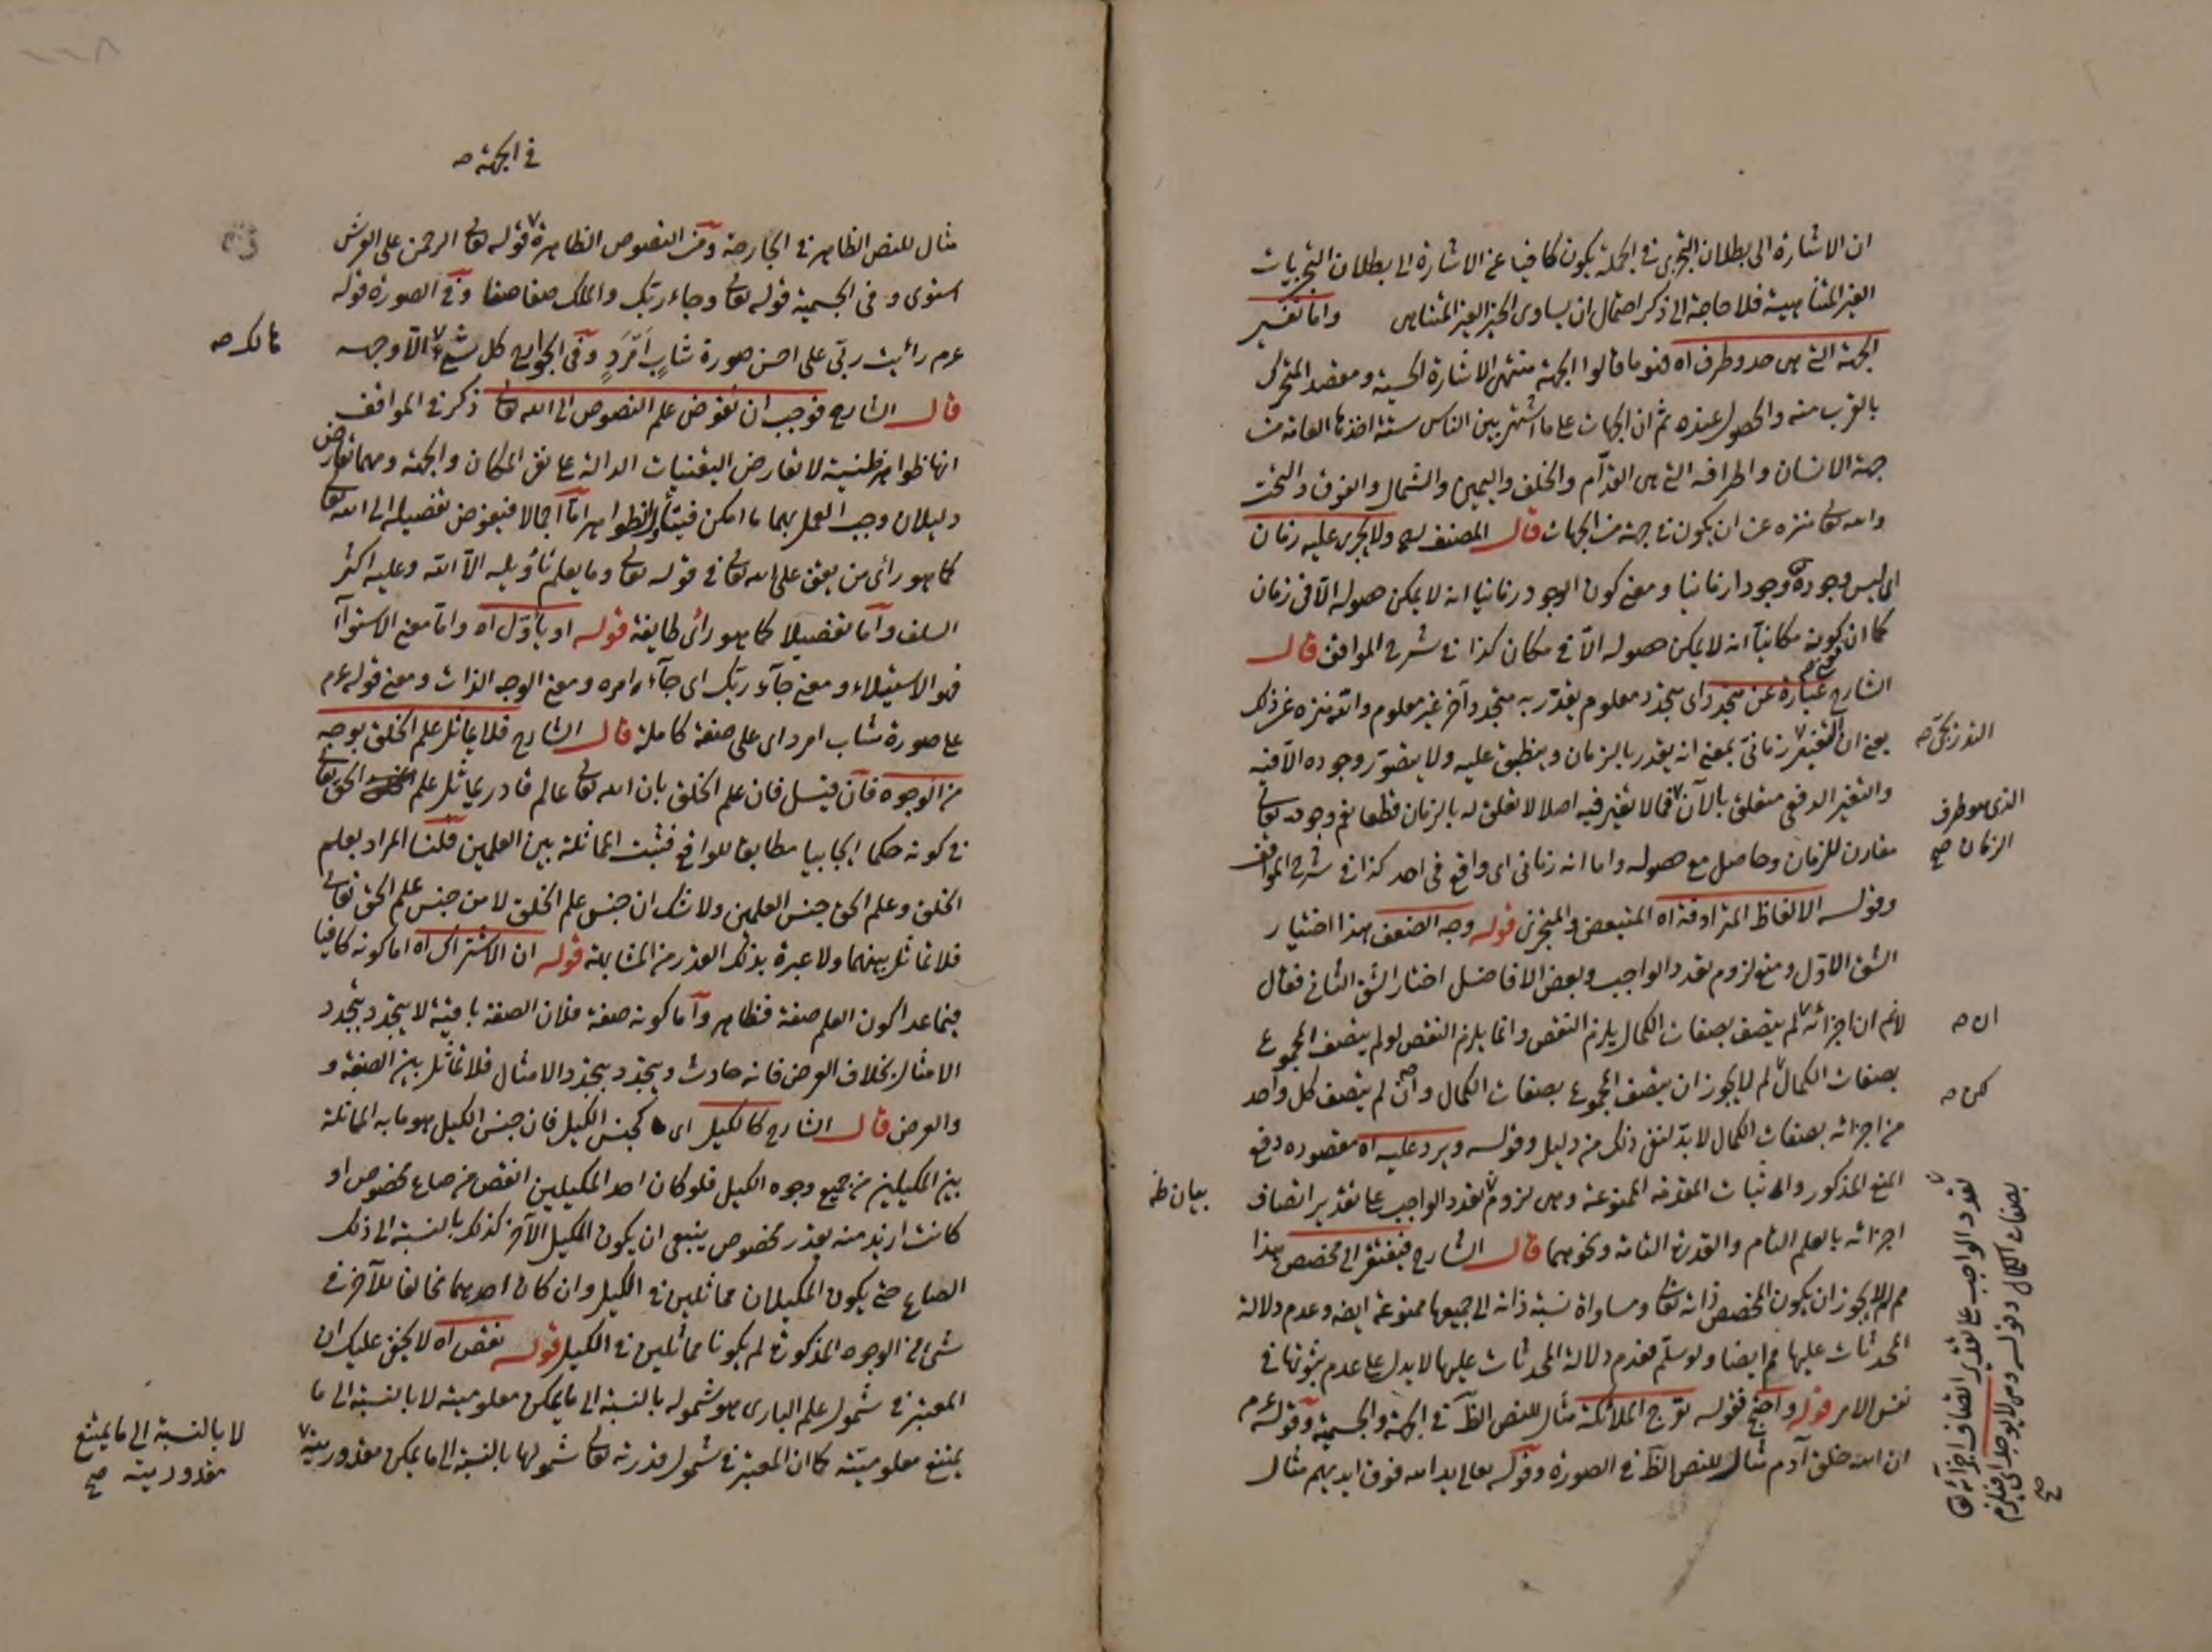 ان الاشارة الى بطلان التجزى فى الجملة يكون كافيا عن الاشارة الى بطلان التجزيات
الغير المتناهية فلا حاجة الى ذكر احتمال ان يساوى الحيز الغير المتناهى واما تفسير
الجهة التى هى حد وطرف اه فنو ما قالوا الجهة منتهى الاشارة الحسية ومقصد المتحرك
بالقرب منه والحصول عنده ثم ان الجهات على ما اشتهر بين الناس ستة اخذها العامة من
جهة الانسان واطرافه التى هى القدّام والخلف واليمين والشمال والفوق والتحت
والله تعالى منزه عن ان يكون فى جهة من الجهات قال المصنف ولا يجرى عليه زمان
اى ليس وجوده وجودا زمانيا ومعنى كون الوجود زمانيا انه لا يمكن حصوله الّا فى زمان
كما ان كونه مكانيّا انه لا يمكن حصوله الّا فى مكان كذا فى شرح المواقف قال
الشارح عبارة عن متجدد اى متجدد معلوم يقدّر به متجدد آخر غير معلوم والله منزه عن ذلك
يعنى ان التغير زمانىّ بمعنى انه يقدر بالزمان وينطبق عليه ولا يتصوّر وجوده الّا فيه
التدريجىّ صه
والتغير الدفعى متعلق بالآن فما لا تغير فيه اصلا لا تعلق له بالزمان قطعا نعم وجوده تعالى
الذى هو طرف
الزمان صح
مقارن للزمان وحاصل مع حصوله واما انه زمانى اى واقع فى احد كذا فى شرح المواقف
وقوله الالفاظ المترادفة اه المتبعض والمتجزى قوله وجه الضعف هذا اختيار
الشق الاوّل ومنع لزوم تعدد الواجب وبعض الافاضل اختار الشق الثانى فقال
لانم ان اجزائه لم يتصف بصفات الكمال يلزم النقص وانما يلزم النقص لو لم يتصف المجموع
ان صه
بصفات الكمال لم لا يجوز ان يتصف المجموع بصفات الكمال وان لم يتصف كل واحد
لكن صه
من اجزائه بصفات الكمال لا بدّ لنفى ذلك من دليل وقوله ويرد عليه اه مقصوده دفع
المنع المذكور واثبات المقدمة الممنوعة وهى لزوم تعدد الواجب على تقدير اتصاف
بيان ظ
اجزائه بالعلم التام والقدرة التامة ونحوهما قال الشارح فيفتقر الى مخصص هذا
مم لم لا يجوز ان يكون المخصص ذاته تعالى ومساواة نسبة ذاته الى جميعها ممنوعة ايضه وعدم دلالة
المحدثات عليها مم ايضا ولو سلّم فعدم دلالة المحدثات عليها لا يدل على عدم ثبوتها فى
نفس الامر قوله واحتج فقوله تعرج الملائكة مثال للنص الظ فى الجهة والجسمية وقوله عم
ان الله خلق آدم مثال للنص الظ فى الصورة وقوله تعالى يد الله فوق ايديهم مثال
تعدد الواجب على تقدير اتصاف اجزائه
بصفات الكمال وقوله
صح
فى الجهة صه
مثال للنص الظاهر فى الجارحة ومن النصوص الظاهرة قوله تعالى الرحمن على العرش
استوى وفى الجسمية قوله تعالى وجاء ربّك والملك صفا صفا وفى الصورة قوله
عم رأيت ربّى على احسن صورة شابٍ اَمْرَدٍ وفى الجوارح كل شئ الّا وجهه
هالك صه
قال الشارح فوجب ان نفوض علم النصوص الى الله تعالى ذكر فى المواقف
انها ظواهر ظنية لا تعارض اليقينيات الدالة على نفى المكان والجهة ومهما تعارض
دليلان وجب العمل بهما ما امكن فيتأول الظواهر امّا اجمالا فيفوض تفصيله الى الله تعالى
كما هو رأى من يقف على الله تعالى فى قوله تعالى وما يعلم تأويله الّا الله وعليه اكثر
السلف وامّا تفصيلا كما هو رأى طايفة قوله او بأوّل اه وامّا معنى الاستواآ
فهو الاستيلاء ومعنى جآء ربّك اى جآء امره ومعنى الوجه الذات ومعنى قوله عم
على صورة شاب امرد اى على صفة كاملة قال الشارح فلا يماثل علم الخلق بوجه
من الوجوه فان قيل فان علم الخلق بان الله تعالى عالم قادر يماثل علم الحق تعالى
فى كونه حكما ايجابيا مطابقا للواقع فثبت المماثلة بين العلمين قلنا المراد بعلم
الخلق وعلم الحق جنس العلمين ولا شك ان جنس علم الخلق لا من جنس علم الحق تعالى
فلا تماثل بينهما ولا عبرة بذلك القدر من المشابهة قوله ان الاشتراك اه اما كونه كافيا
فيما عدا كون العلم صفة فظاهر وامّا كونه صفة فلان الصفة باقية لا يتجدد بتجدد
الامثال بخلاف العرض فانه حادث ويتجدد بتجدد الامثال فلا تماثل بين الصفة و
والعرض قال الشارح كالكيل اى كجنس الكيل فان جنس الكيل هو ما به المماثلة
بين المكيلين من جميع وجوه الكيل فلو كان احد المكيلين انقص من صاع مخصوص او
كانت ازيد منه بقدر مخصوص ينبغى ان يكون المكيل الآخر كذلك بالنسبة الى ذلك
الصاع حتى يكون المكيلان مماثلين فى الكيل وان كان احدهما مخالفا للآخر فى
شئ من الوجوه المذكورة لم يكونا مماثلين فى الكيل قوله نقص اه لا يخفى عليك ان
المعتبر فى شمول علم البارى هو شموله بالنسبة الى ما يمكن معلوميته لا بالنسبة الى ما
يمتنع معلوميته كما ان المعتبر فى شمول قدرته تعالى شمولها بالنسبة الى ما يمكن مقدوريته
لا بالنسبة الى ما يمتنع
مقدوريته صح